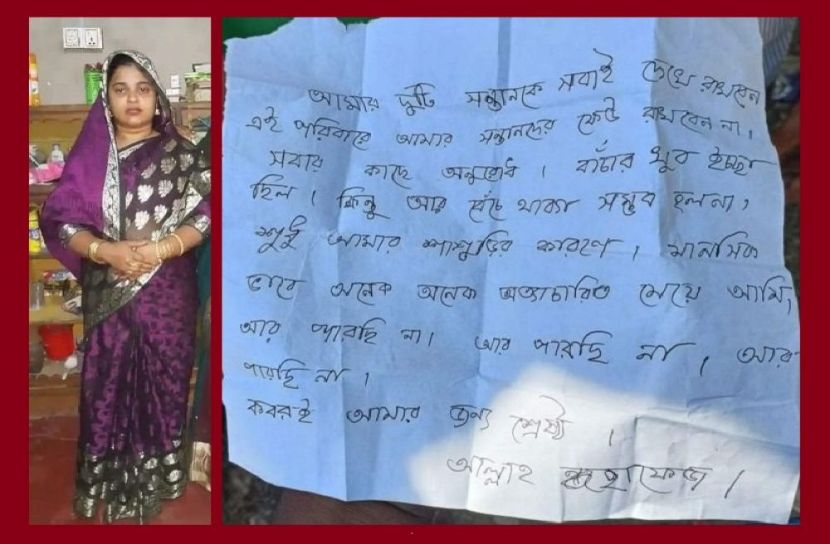 আমার দুটি সন্তানকে সবাই দেখে রাখবেন
এই পরিবারে আমার সন্তানদের কেউ রাখবেন না।
সবার কাছে অনুরোধ। বাঁচার খুব ইচ্ছা
ছিল। কিন্তু আর বেঁচে থাকা সম্ভব হলনা,
শুধু আমার শাশুড়ির কারণে। মানসিক
ভাবে অনেক অনেক অত্যাচারিত মেয়ে আমি,
আর পারছি না। আর পারছি না, আর
পারছি না।
কবরই আমার জন্য শ্রেষ্ঠ।
আল্লাহ হাফেজ।